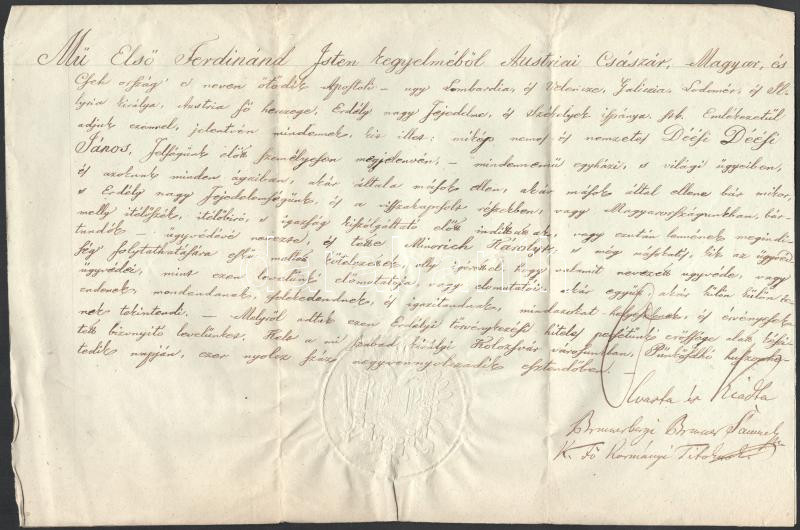 Mű Első Ferdinánd Isten kegyelméből Austriai Császár, Magyar, és
Cseh ország' e neven ötödik Apostoli – ugy Lombardia, és Velencze, Galiczia, Lodomér, és Ill-
yria királya, Austria fő herczege, Erdély nagy Fejedelme, és Székelyek ispánya. stb. Emlékezetül
adjuk ezennel, jelentvén mindennek, kit illet: miképp nemes és nemzetes Déési Déési
János, Felségünk előtt személyesen megjelenvén, – mindennemű egyházi, s világi ügyeiben,
és azoknak minden ágaiban, akár általa mások ellen, akár mások által ellene bár mikor,
s Erdély nagy Fejedelemségünk, és a visszakapcsolt részekben, vagy Magyarországunkban, bár-
melly itélőszék, itélőbiró, s igazság kiszolgáltató előtt indittattak, vagy ezután lennének megindi-
tandók – ügyvédévé nevezte, és tette Minorich Károlyt s még másokat, kik az ügyvéd-
ség folytathatására eskü mellett köteleztettek, olly igérettel: hogy valamit nevezett ügyvéde, vagy
ügyvédei, mint ezen levelünk' előmutatója, vagy előmutatói akár együtt, akár külön külön te-
endenek mondandanak, felelkedendnek, és igazitandnak, mindazokat helyeseknek, és érvényesek-
nek tekintendi. – Melyről adtuk ezen Erdélyi törvénykezési hiteles pecsétünk erőssége alatt költ
bizonyitó levelünket. Kelt a mi szabad királyi Kolozsvár városunkban, Pünkösdhó huszon
tedik napján, ezer nyolcz száz negyvennyolczadik esztendőben. –
Olvasta és Kiadta
Bruckenthal Sámuel
K. Fő Kormányi Titoknok